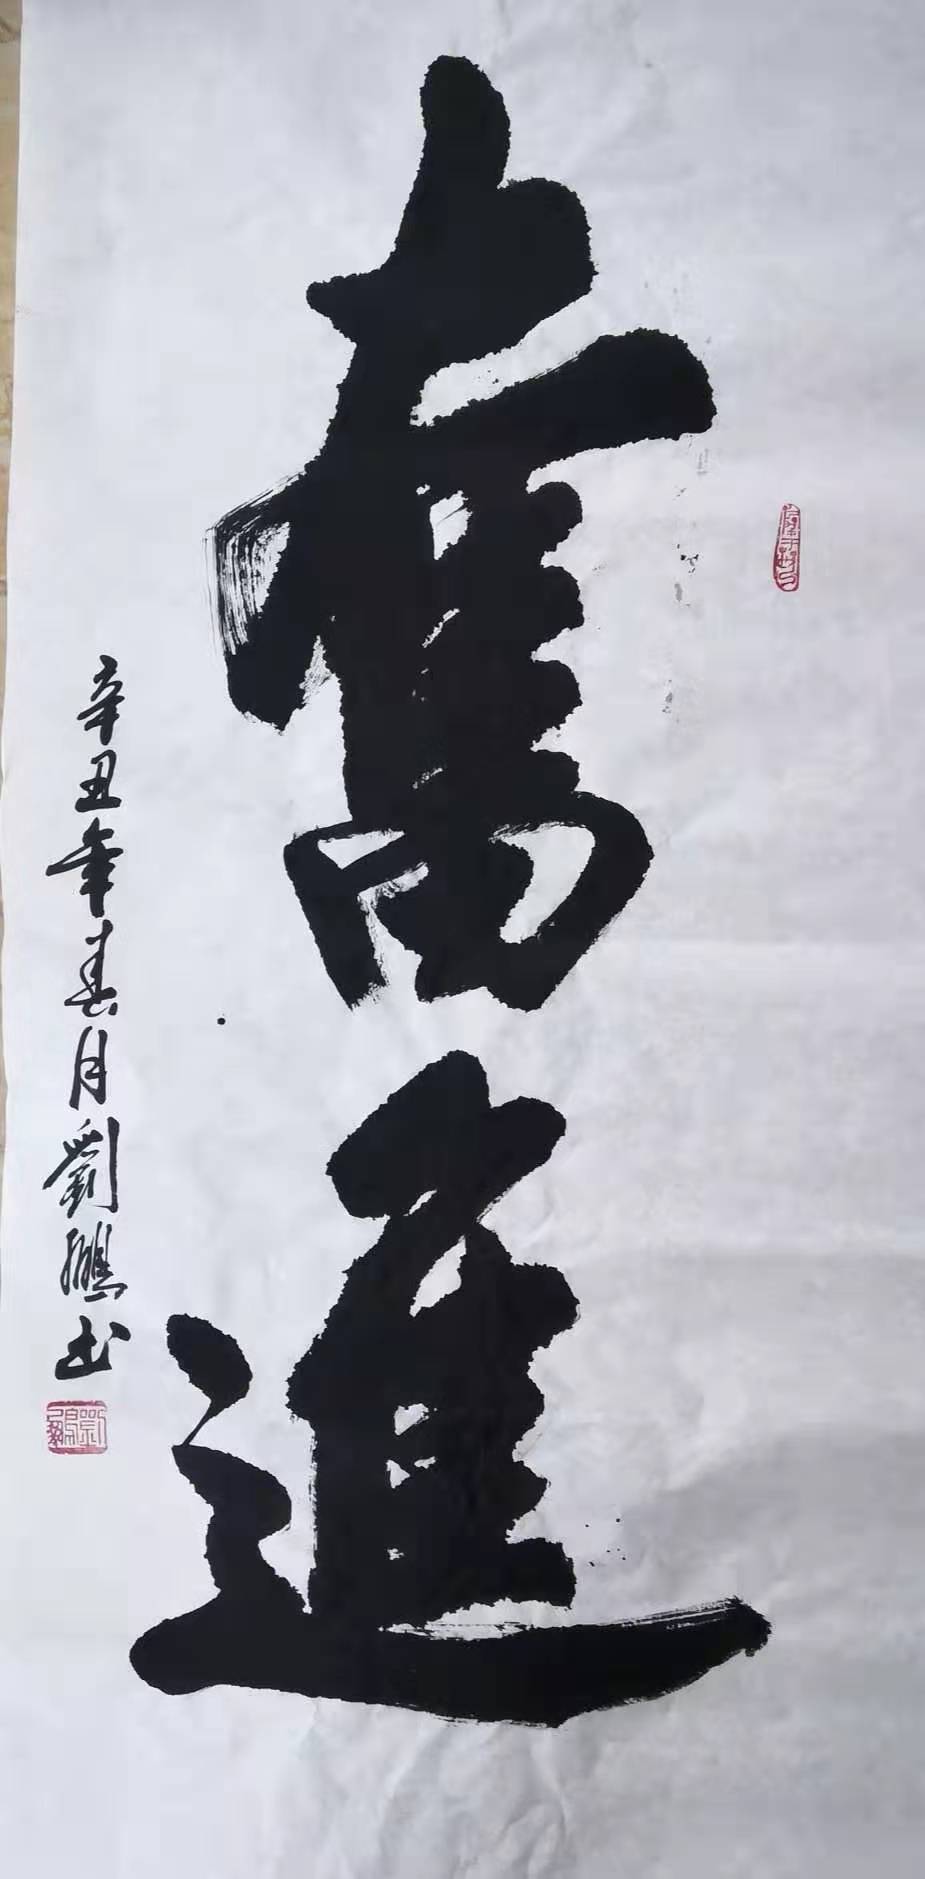 奮進
辛丑年春月劉鵬書